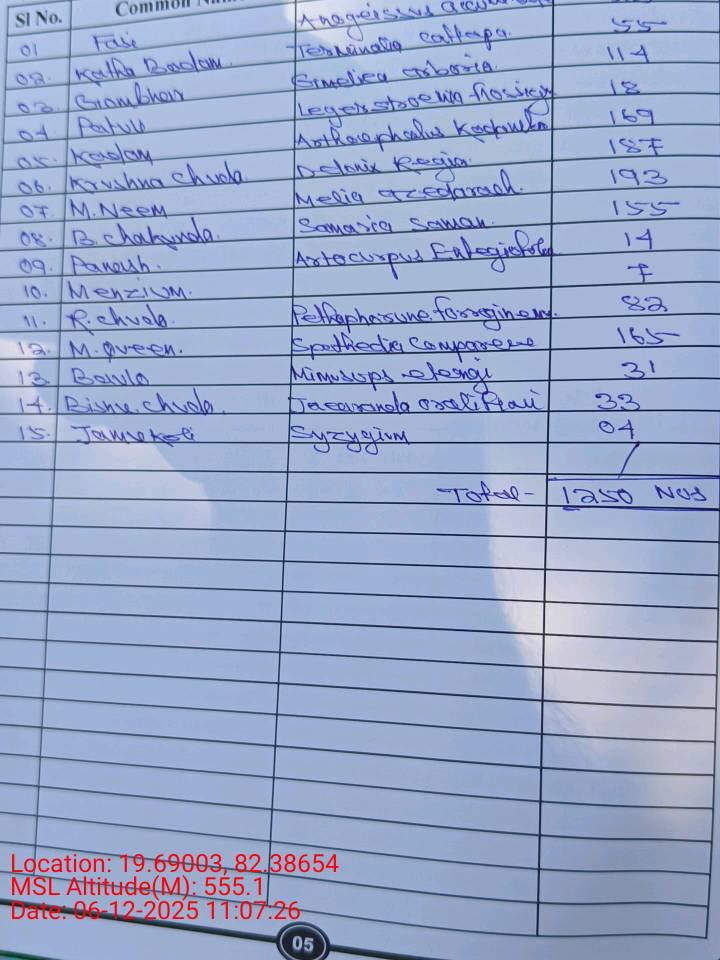 Sl No. Common
01 Fasi Anogeissus
02. Katha Badam. Terminalia cattapa. 55
03. Gambhari Gimeliea arboria. 114
04 Patuli 18
05. Kadam Anthocephalus 169
06. Krushna chuda. Delonix Regia. 187
07. M. Neem Melia azedarach. 193
08. B. chakunda. Samasia saman. 155
09. Panash. Artocurpus 14
10. Menzium. 7
11. R. chuda. 82
12. M. Queen. Spathedia 165
13. Baulo Mimusops elengi 31
14. Bisnu. chuda. Jacaranda 33
15. Jamukoli Syzygium 04
Total- 1250 Nos
Location: 19.69003, 82.38654
MSL Altitude(M): 555.1
Date: 06-12-2025 11:07:26
05